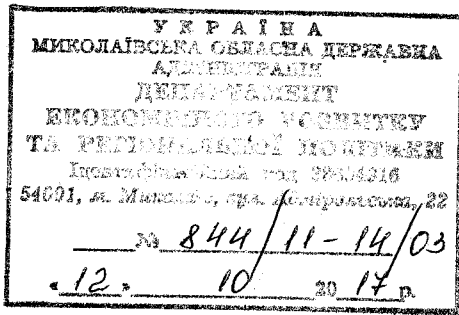 УКРАЇНА
МИКОЛАЇВСЬКА ОБЛАСНА ДЕРЖАВНА
АДМІНІСТРАЦІЯ
ДЕПАРТАМЕНТ
ЕКОНОМІЧНОГО РОЗВИТКУ
ТА РЕГІОНАЛЬНОЇ ПОЛІТИКИ
Ідентифікаційний код
54001, м. Миколаїв, 22
№ 844/11-14/03
«12» 10 2017 р.